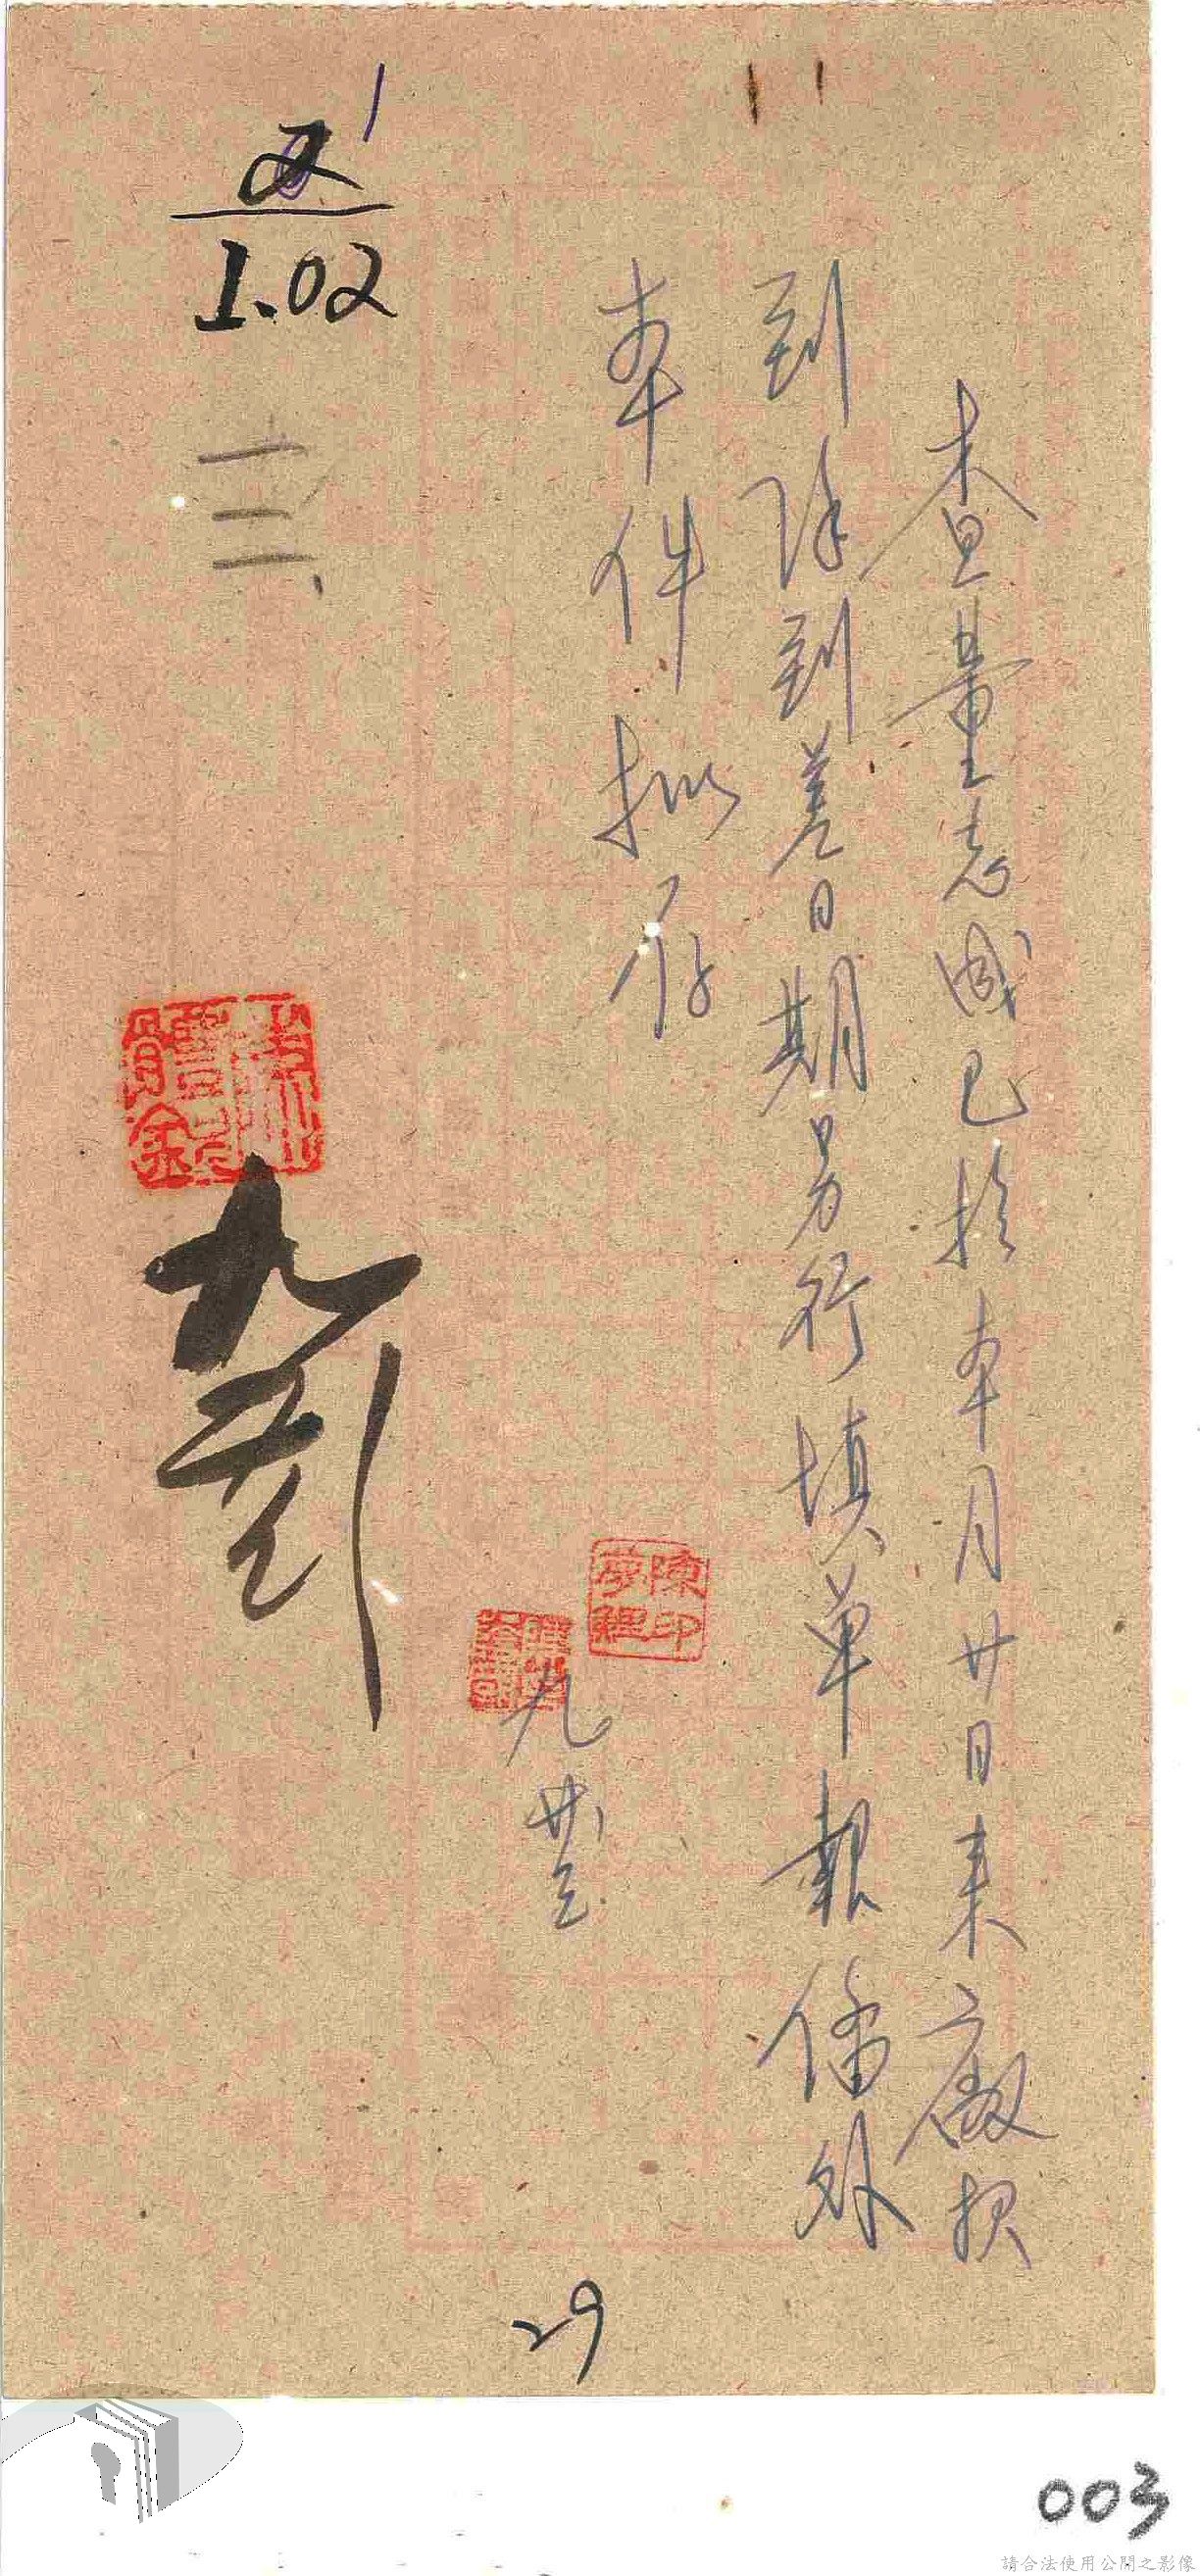 查董志成已於本月廿日來廠報
到除到差日期另行填單報僱外
本件擬存
陳印
夢鯉
九 廿三
1.02
29
003
請合法使用公開之影像